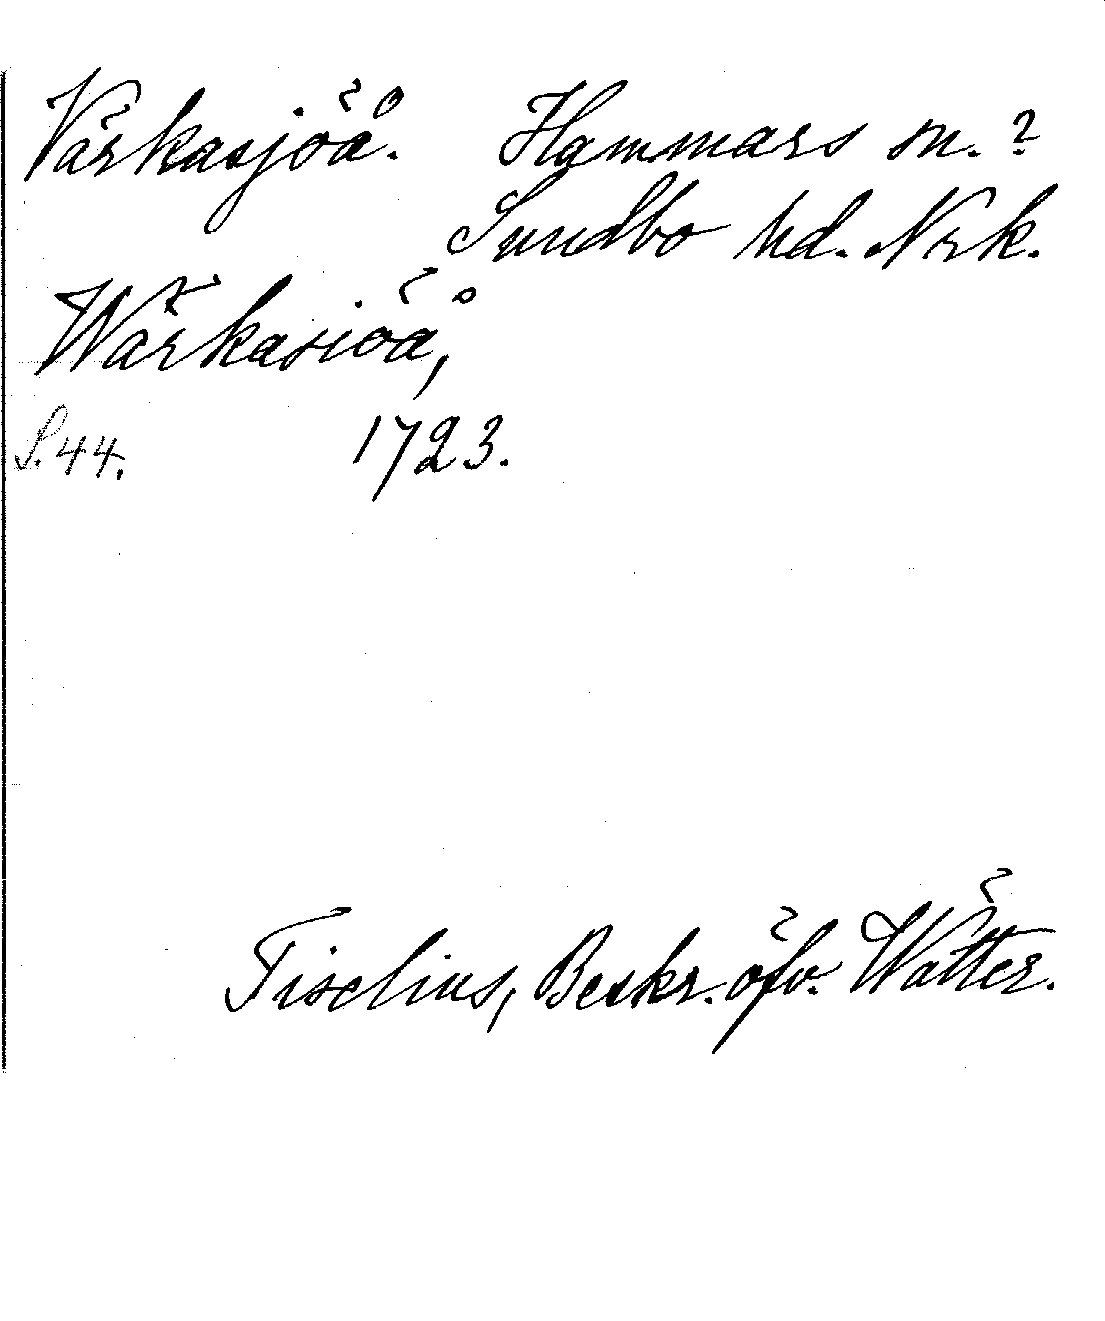 Värkasjöå. Hammars sn.?
Sundbo hd. Nrk.
Wärkasiöå,
S. 44. 1723.
Tiselius, Beskr. öfv. Wätter.